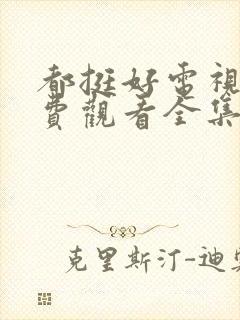 都挺好電視
費觀看全集
克里斯汀-迪